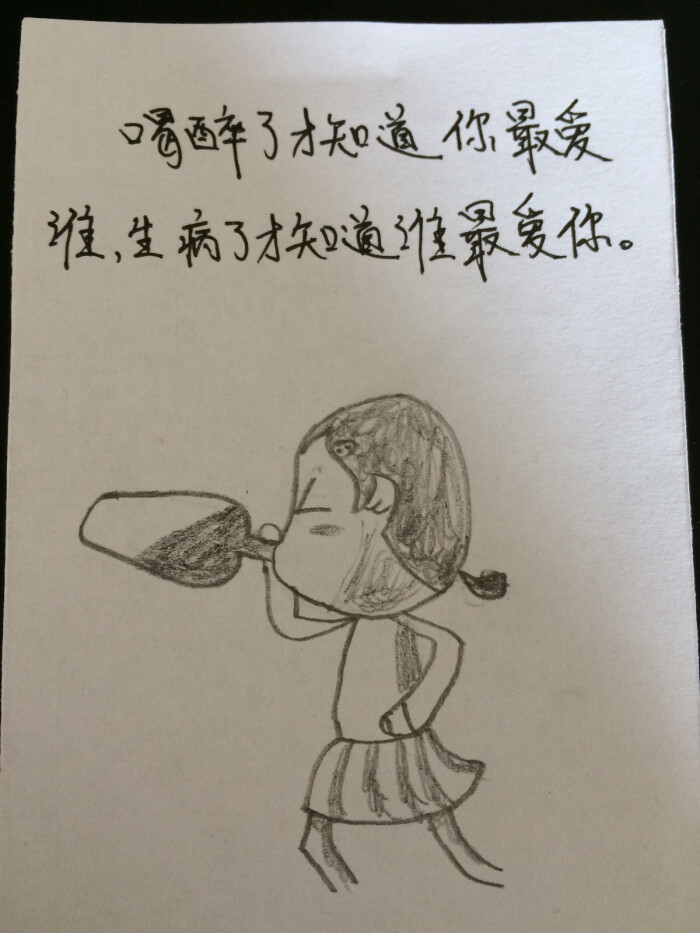 喝醉了才知道你最爱
谁,生病了才知道谁最爱你。